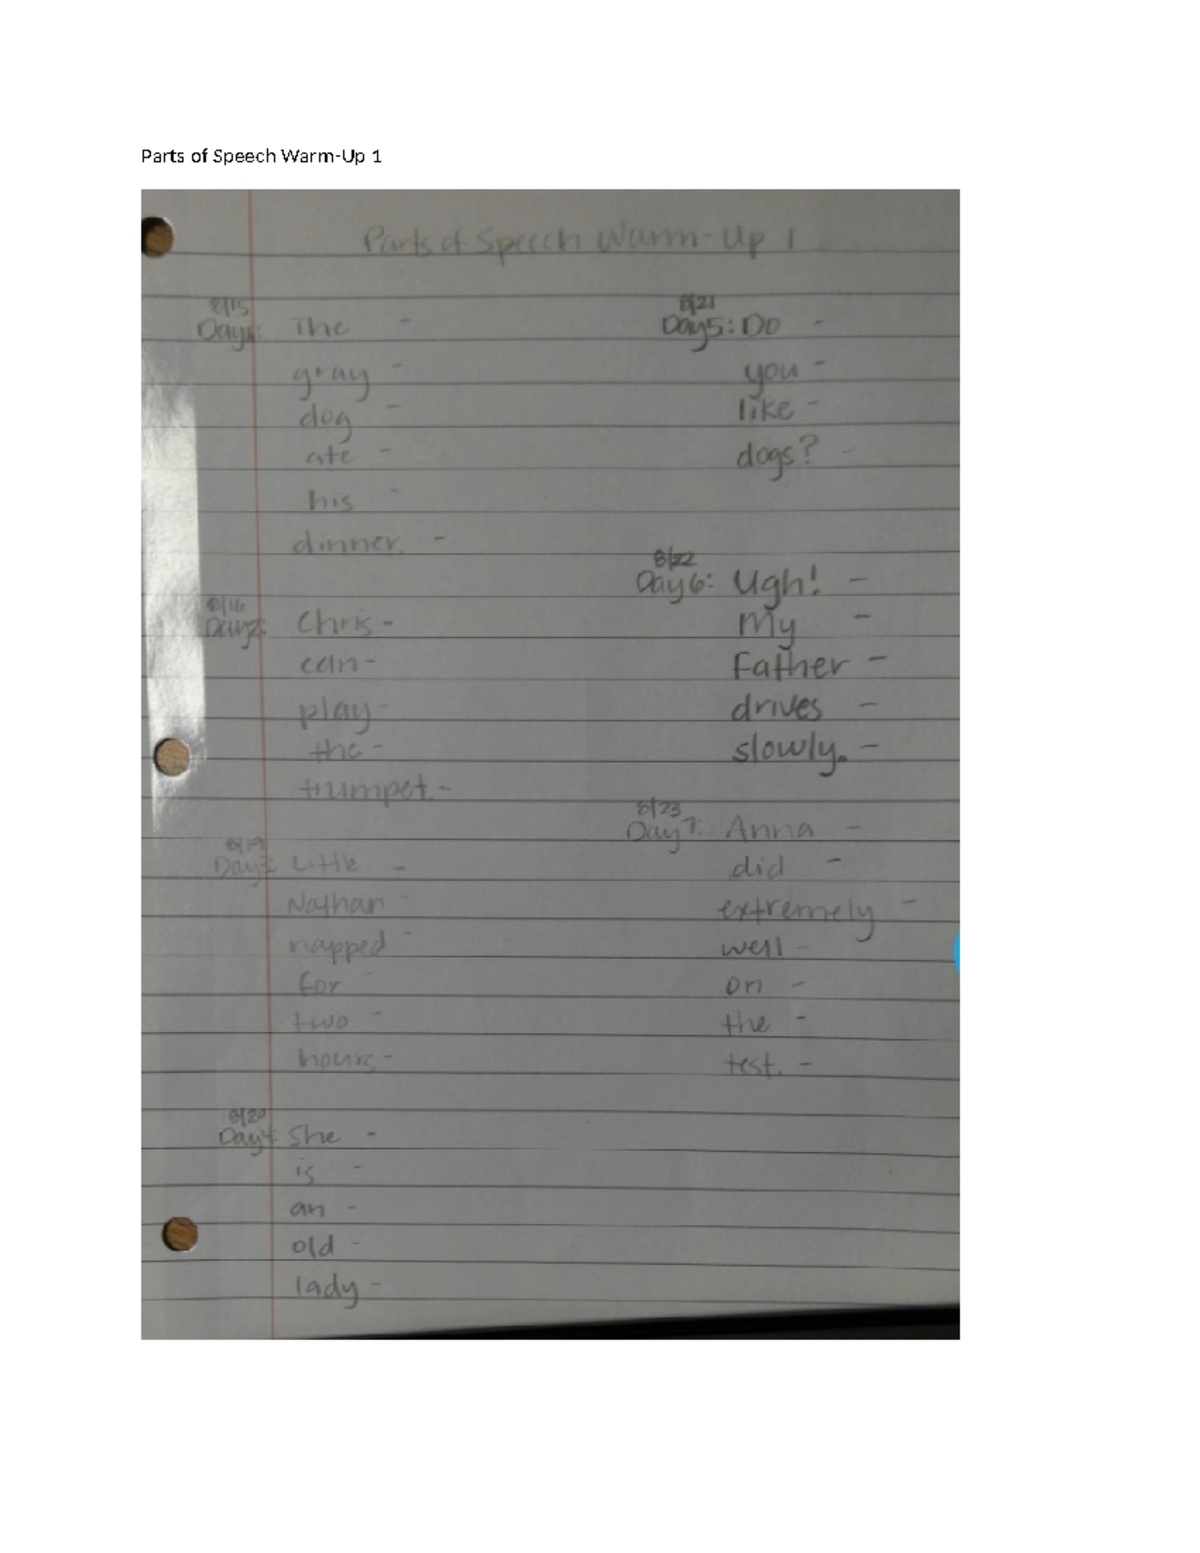 Parts of Speech Warm-Up 1
Parts of Speech Warm-Up 1
8/15
Day1: The -
gray -
dog -
ate -
his -
dinner. -
8/16
Day2: Chris -
can -
play -
the -
trumpet. -
8/19
Day3: Little -
Nathan -
napped -
for -
two -
hours -
8/20
Day4: She -
is -
an -
old -
lady -
8/21
Day5: Do -
you -
like -
dogs? -
8/22
Day6: Ugh! -
My -
Father -
drives -
slowly. -
8/23
Day7: Anna -
did -
extremely -
well -
on -
the -
test. -